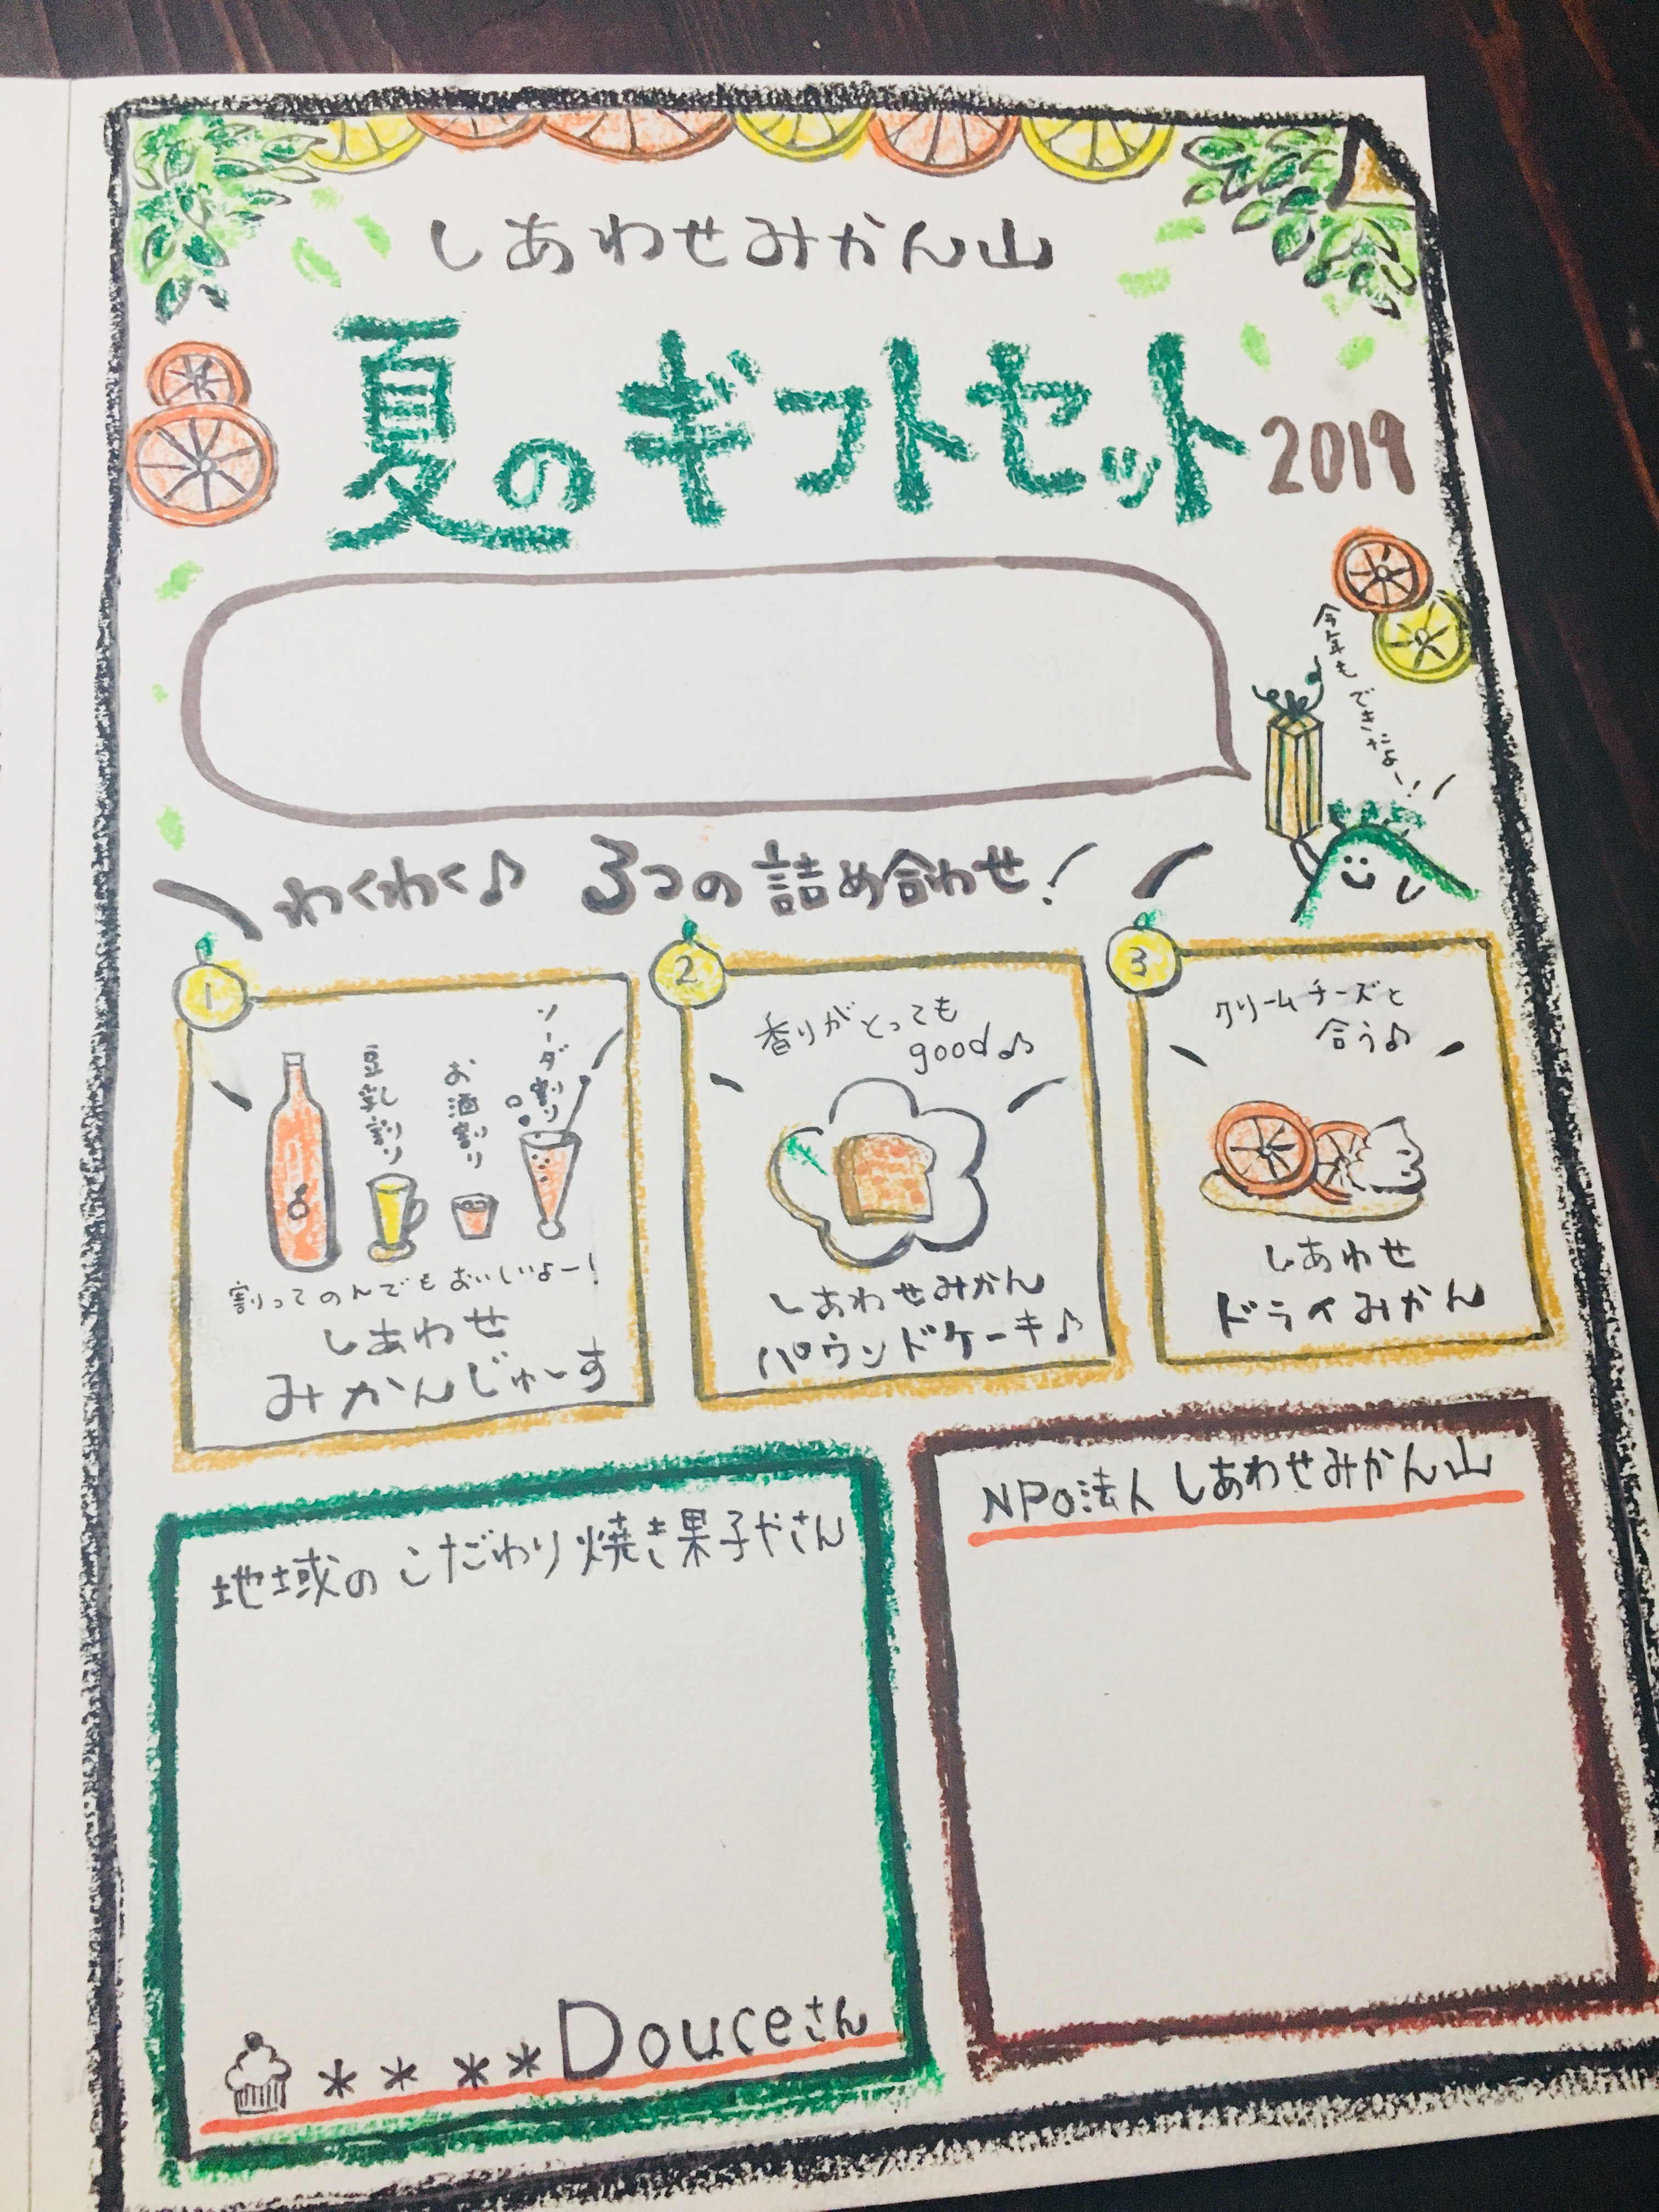 しあわせみかん山
夏のギフトセット 2019
今年もできたよー!
わくわく♪ 3つの詰め合わせ!
1
豆乳割り
お酒割り
ソーダ割り
割ってのんでもおいしいよー!
しあわせ
みかんじゅーす
2
香りがとっても
good♪
しあわせみかん
パウンドケーキ♪
3
クリームチーズと
合う♪
しあわせ
ドライみかん
地域のこだわり焼き果子やさん
****Douceさん
NPO法人しあわせみかん山